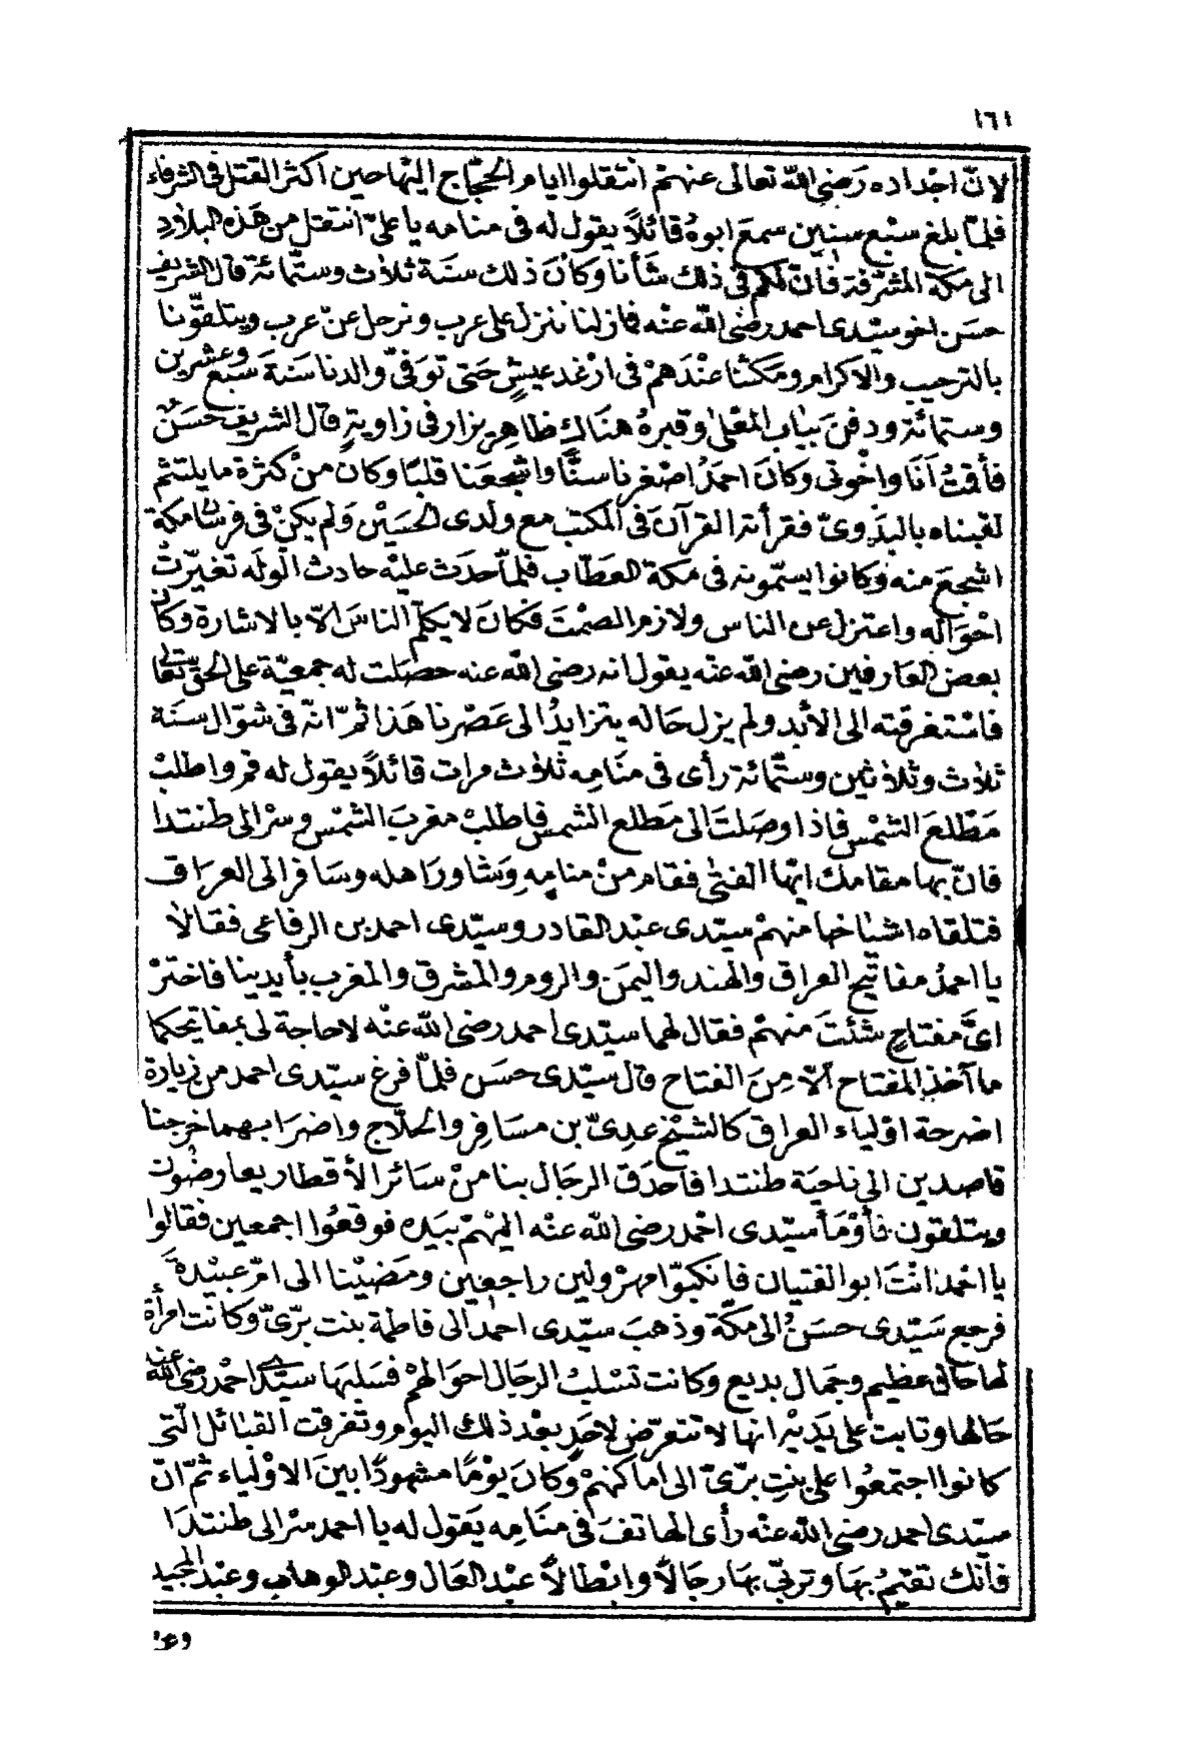 ١٦١
لانّ اجداده رَضي الله تعالى عنهمْ انتقلوا ايام الحجّاج اليها حين اكثر القتل فى الشرفاء
فلمّا بلغ سبْع سنين سمعَ ابوهُ قائلاً يقول له فى منامه يا علىّ انتقل من هَذه البلادِ
الى مكة المشرّفة فانّ لكم فى ذلك شأنا وكانَ ذلك سنَة ثلاث وستّمائة قال الشريف
حسَن اخو سيّدى احمد رضى الله عنه فما زلنا ننزل على عرب ونرحل عنْ عرب ويتلقّوننا
بالترحيب والاكرام ومكثنا عنْدَهمْ فى ارْغد عيشٍ حَتى تُوفىّ والدنا سَنَة سَبْع وعشرين
وستمائة ودفنَ بباب المعْلى وقبرهُ هنَاك ظاهر يزار فى زاويةٍ قال الشريف حَسَنٌ
فأقمتُ اَنَا واخْوتى وكانَ احمَدُ اصْغرنا سنًّا واشْجعَنا قلبًا وكان منْ كثرة ما يلتثم
لقبناه بالبدَوىّ فقرأت القرآنَ فى المكتب مع ولدى الحسَيْن ولم يكنْ فى فرسَان مكة
اشجعَ منه وكانوا يسمّونه فى مكة العَطّاب فلمّا حَدَث عليْه حادث الولَه تغيّرتْ
احْوَاله واعتزل عن الناس ولازم الصمْتَ فكانَ لا يكلّم الناسَ الّا بالاشارة وكان
بعض العَارفين رضى الله عنه يقول انه رضى الله عنه حصَلت له جمعيّة على الحق تعَالى
فاسْتغرقته الى الأبَد ولم يزل حَاله يتزايدُ الى عَصْرنا هَذا ثمّ انّه فى شوّال سنَة
ثلاث وثلاثين وستّمائة رأى فى منَامِه ثلاث مرات قائلاً يقول له قم واطلبْ
مَطْلعَ الشمْس فاذا وصَلتَ الى مَطلع الشمس فاطلبْ مغربَ الشمْس وسرْ الى طنتدا
فانّ بها مقامك ايّها الفتى فقام منْ منامِه وَشاورَ اهله وسَافر الى العرَاق
فتلقاه اشيَاخها منهمْ سيّدى عبْد القادر وسيّدى احمد بن الرفاعى فقالاَ
يا احمدُ مفاتيح العراق والهند واليمَن والروم والمشرق والمغرب بأيدينا فاخترْ
اىَّ مفتاحٍ شئتَ منهمْ فقال لهما سيّدى احمد رضى الله عنْه لا حاجة لى بمفاتيحكما
ما آخذ المفتاح الّا مِنَ الفتاح قال سيّدى حسَن فلمّا فرغ سيّدى احمد من زيارة
اضرحة اوْلياء العراق كالشيْخ عدىّ بن مسَافِر والحلّاج واضرَابهما خرجنا
قاصدين الى ناحيَة طنتدا فأحدَق الرجَال بنا منْ سَائر الأقطار يعارضُون
ويتلقون فأوْمَأ سيّدى احْمد رضى الله عنْه اليْهمْ بيَده فوقعُوا اجمعين فقالوا
يا احْمَد انْتَ ابو الفتيان فانكبّوا مهزولين راجعين ومَضَيْنا الى امّ عبيْدَةَ
فرجع سَيّدى حسَنٌ الى مكّة وذهبَ سيّدى احمد الى فاطمة بنت برّىّ وكانت امرأة
لها حَال عظيم وجمال بديع وكانت تسْلبُ الرجَال احوَالهمْ فسَلبها سيّدى احْمد رضى الله عنه
حَالها وتابت على يَدَيْه انها لا تتعرّض لاحَدٍ بعْد ذلك اليوم وتفرقت القبائل الّتى
كانوا اجتمعُوا على بنت برّىّ الى اماكنهمْ وكانَ يوْمًا مشهودًا بينَ الاوْلياء ثمّ انّ
سيّدى احمد رضى الله عنْه رأى الهاتفَ فى منَامِه يَقول له يا احمد سرْ الى طنتدَا
فأنك تقيمُ بهَا وتربّى بهَا رجَالاً وابْطالاً عبْد العَال وعبْد الوهاب وعبْد المجيد